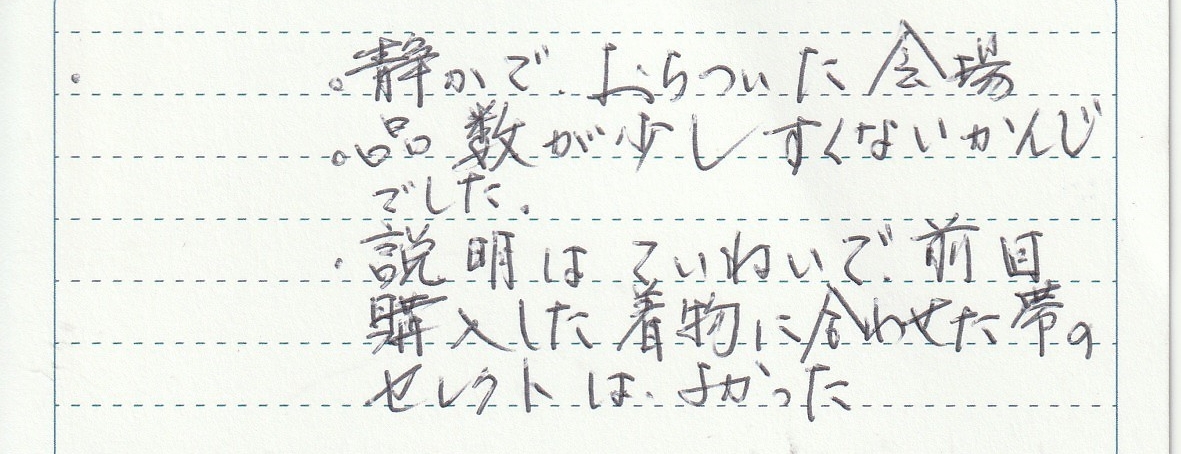 。静かで、おちついた会場
。品数が少しすくないかんじ
でした。
・説明はていねいで、前回
購入した着物に合わせた帯の
セレクトは、よかった